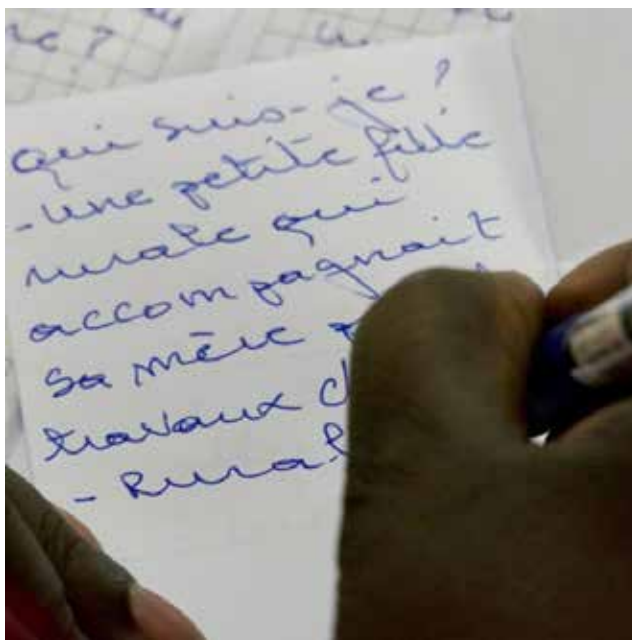 qui suis-je ?
- une petite fille
rurale qui
accompagnait
sa mère
travaux
- Rural